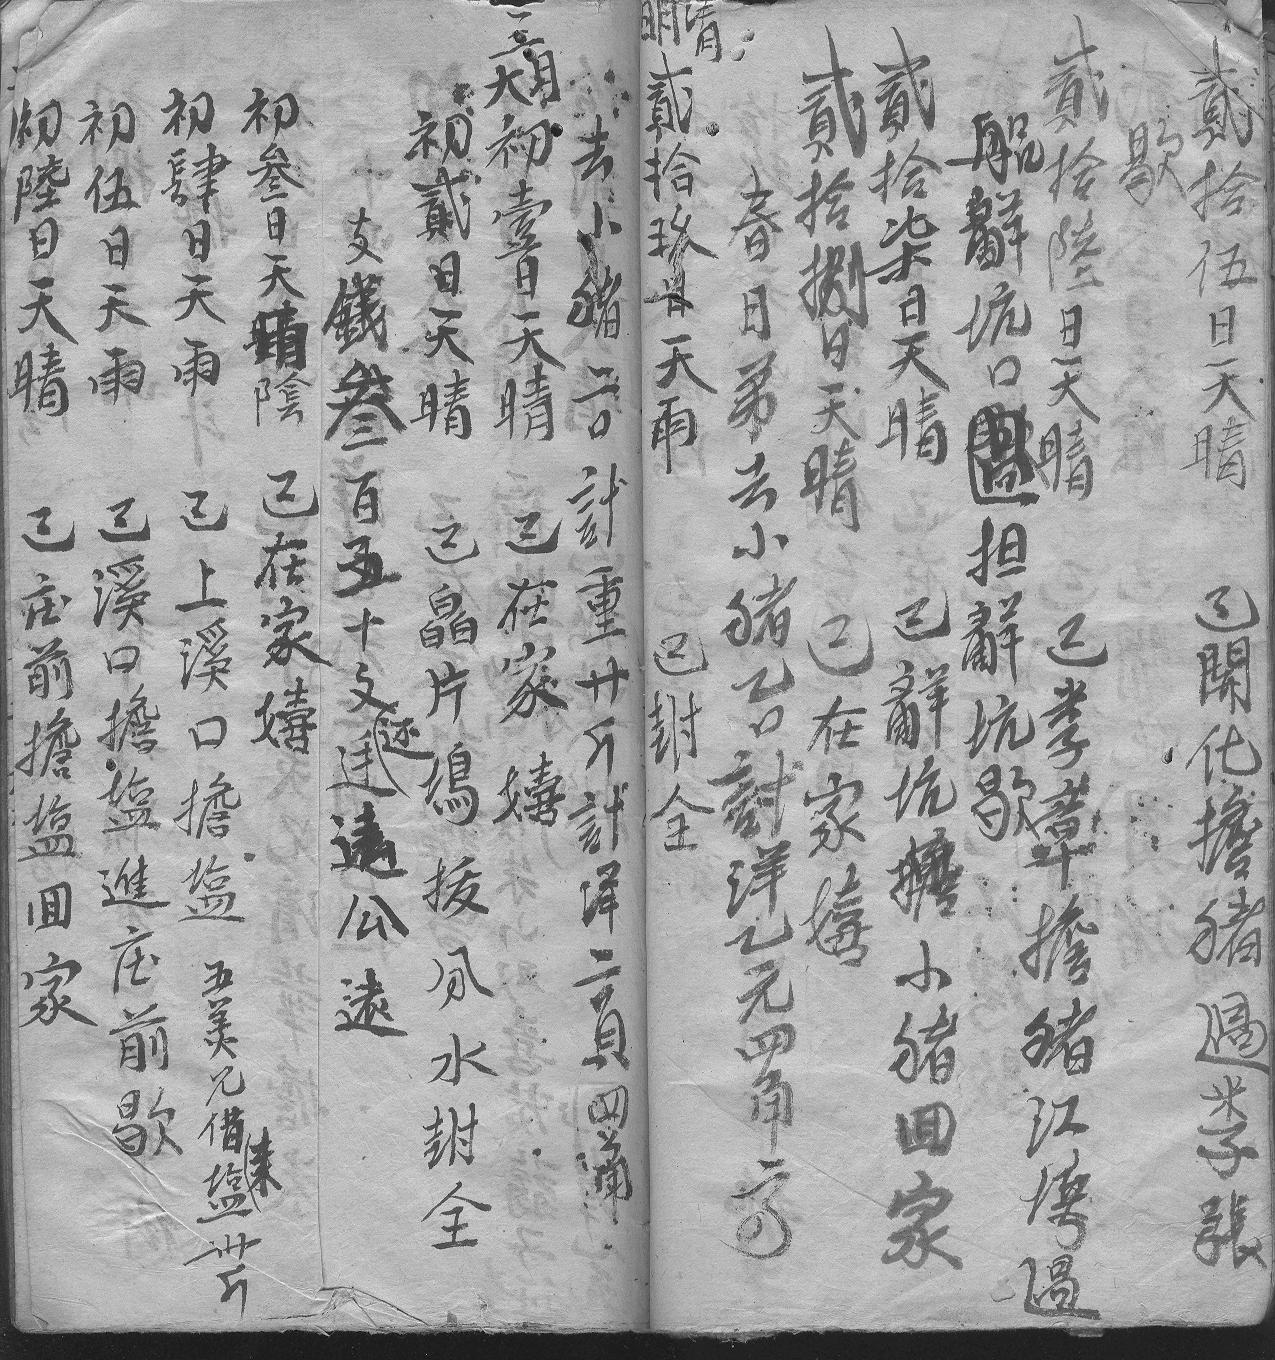 貳拾伍日天晴 己開化擔豬過李子張
歇
貳拾陸日天晴 己李擔豬江塆過
辭坑口担辭坑歇
貳拾柒日天晴 己辭坑擔小豬回家
貳拾捌日天晴 己在家嬉
春日弟去小豬乙口計洋乙元四角
清明
貳拾玖日天雨 己封全
去小豬二口計重廿斤計洋二員四
三月大初壹日天晴 己在家嬉
初貳日天晴 己畠片塢拔分水封全
支錢叁百五十文遠公遠
初叁日天陰 己在家嬉
初肆日天雨 己上溪口擔塩 五美兄借來塩卅斤
初伍日天雨 己溪口擔塩進庄前歇
初陸日天晴 己庄前擔塩回家